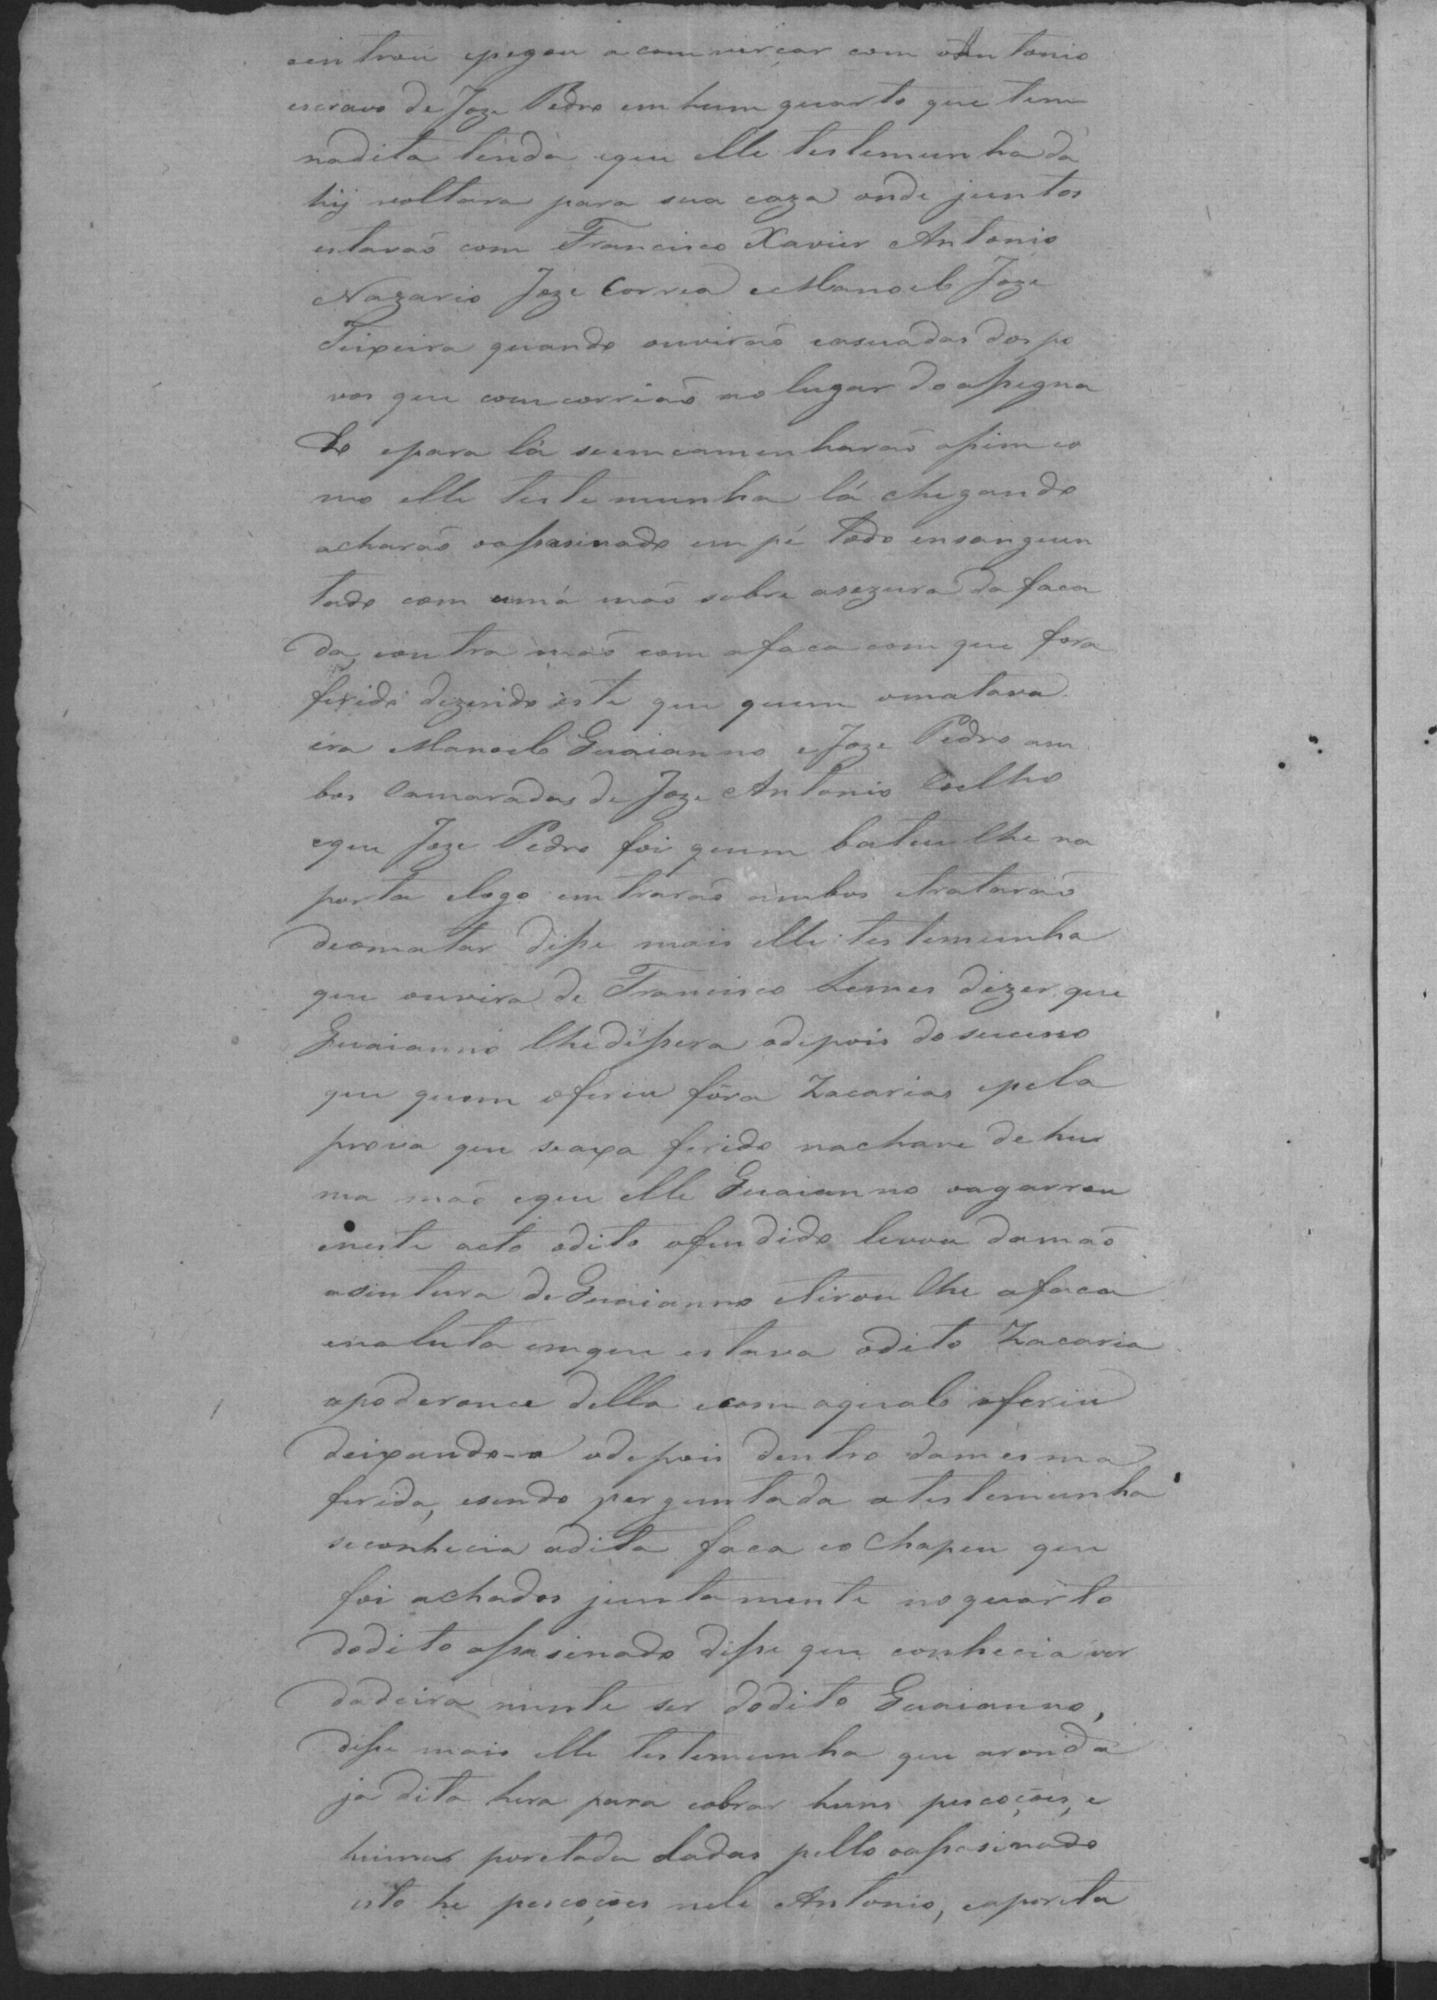 eintrou epegou a comverçar com oAntonio
escravo de Joze Pedro em hum quarto que tem
nadita tenda eque elle testemunha da
hij voltara para sua caza onde juntos
estavaõ com Francisco Xavier Antonio
Nazario Joze Correa eManoel Joze
Teixeira quando ouviraõ asuadas dos po
vos que comcorriaõ no lugar do asigna
do epara lá seemcamenharaõ asim co
mo elle testemunha lá chegando
acharaõ oasasinado em pé todo ensanguen
tado com uma maõ sobre asezura da faca
da, eoutra maõ com afaca com que fora
ferido dizendo este que quem omatava
éra Manoel Guaianno eJoze Pedro am
bos Camaradas de Joze Antonio Coelho
eque Joze Pedro foi quem bateu lhe na
porta elogo emtraraõ ambos etrataraõ
deomatar disse mais elle testemunha
que ouvira de Francisco Lemes dizer que
Guaianno lhedissera adepois dosuceso
que quem oferiu fôra Zacarias epela
prova que seaxa ferido nachave dehu
ma maõ eque elle Guaianno oagarrou
eneste acto odito ofendido levou damaõ
asintura deGuaianno etirou lhe afaca
enaluta emque estava odito Zacaria
apoderouce della ecom aqual oferiu
deixando-a adepois dentro damesma
ferida, esendo perguntada atestemunha
seconhecia adita faca eo chapeu que
foi achados juntamente noquarto
dodito assasinado disse que conhecia ver
dadeira mente ser dodito Guaianno,
disse mais elle testemunha que aronda
já dita hera para cobrar huns pescoçoẽs, e
humas poretada dadas pello oassasinado
isto he pescoçoes nele Antonio, eaporeta